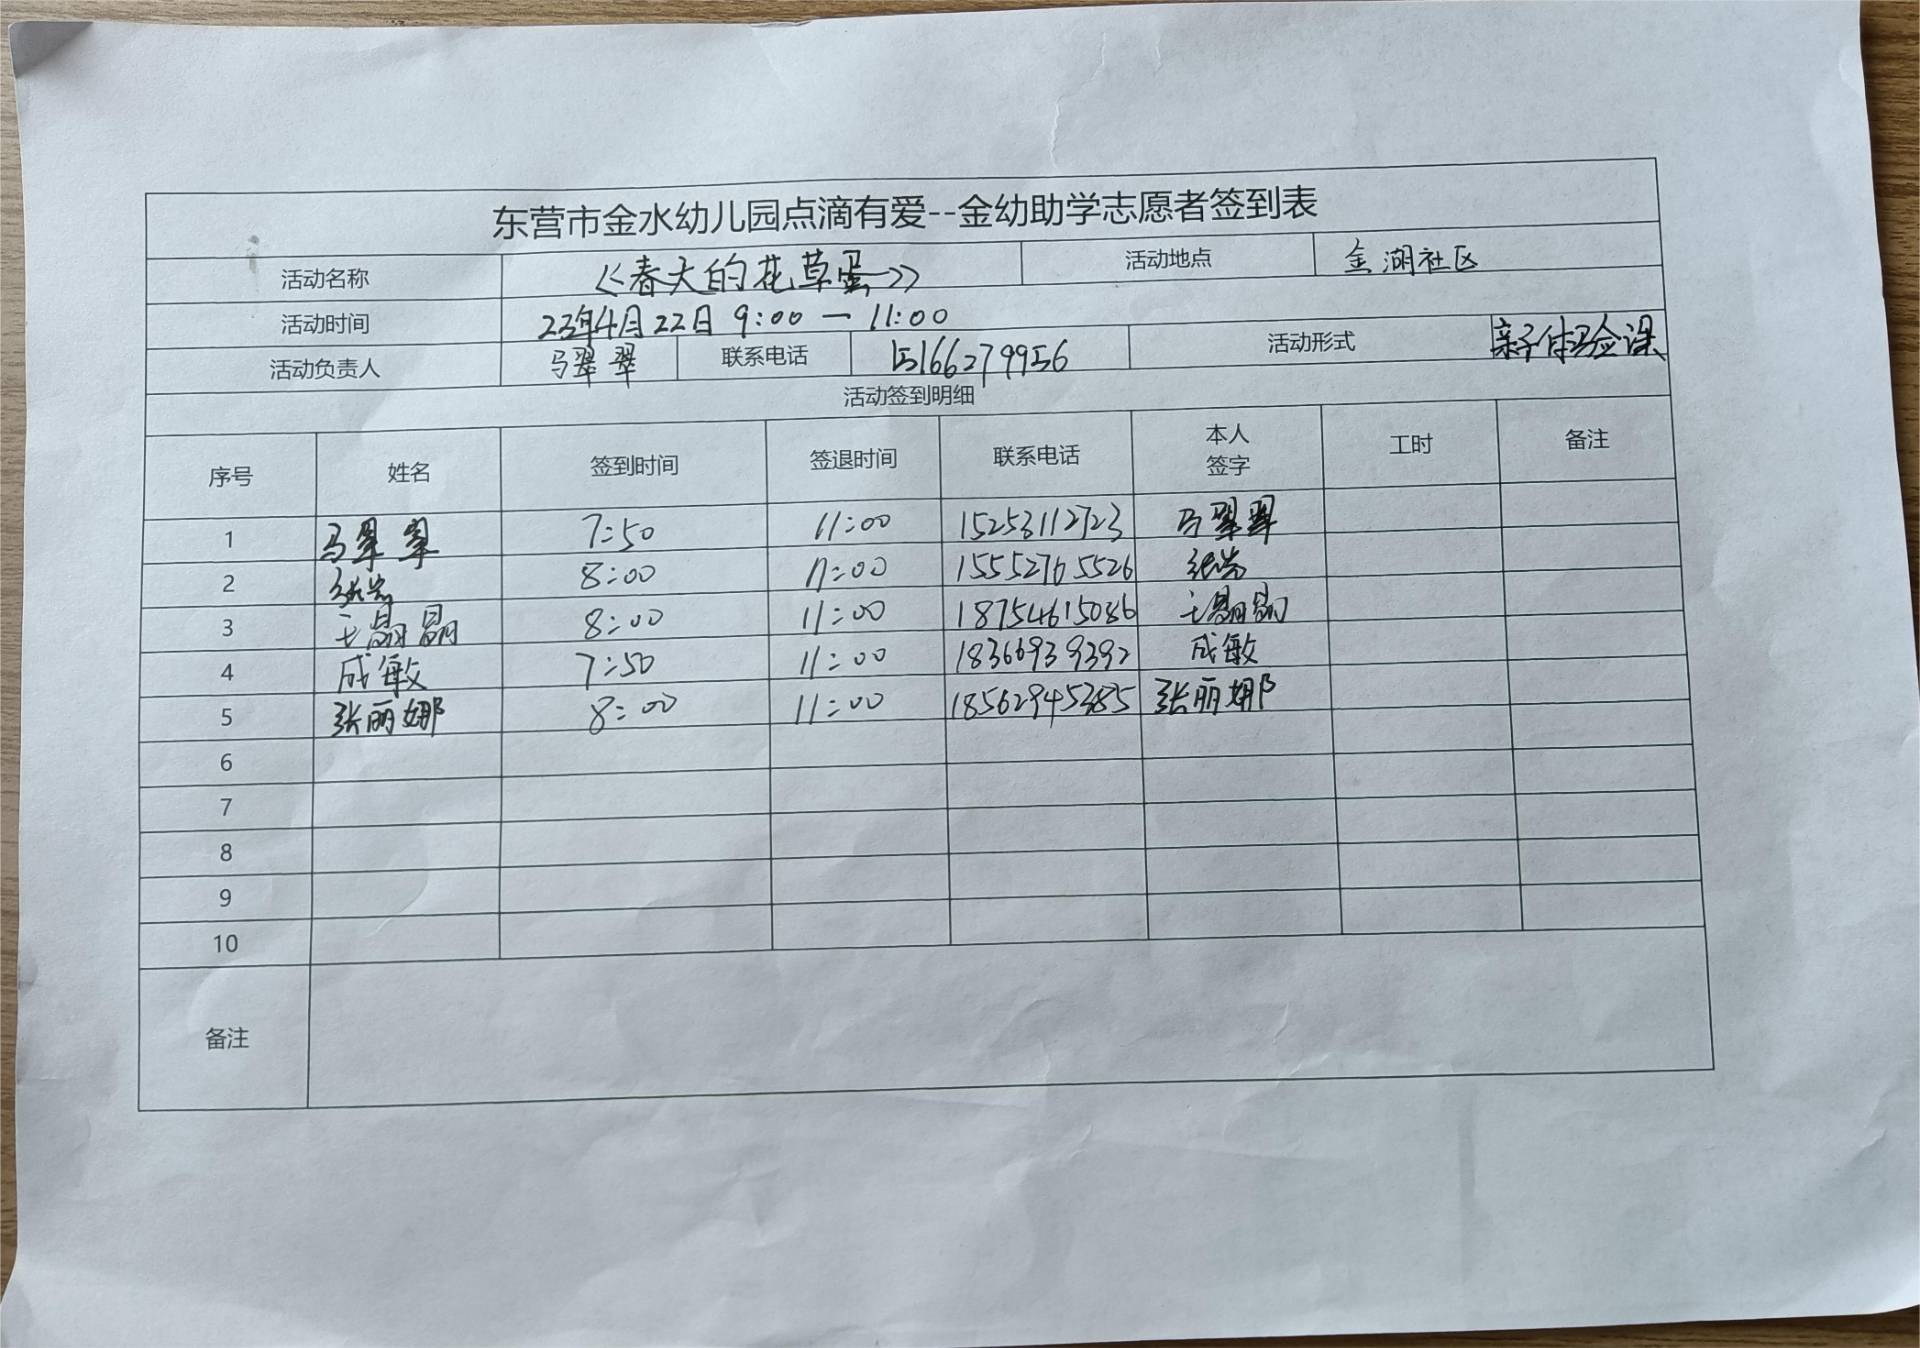 东营市金水幼儿园点滴有爱--金幼助学志愿者签到表
活动名称 《春天的花草蛋》 活动地点 金湖社区
活动时间 23年4月22日 9:00 — 11:00
活动负责人 马翠翠 联系电话 15166279956 活动形式 亲子体验课
活动签到明细
序号 姓名 签到时间 签退时间 联系电话 本人 签字 工时 备注
1 马翠翠 7:50 11:00 15253112723 马翠翠
2 8:00 11:00 15552765526
3 王晶晶 8:00 11:00 18754615086 王晶晶
4 成敏 7:50 11:00 18366939392 成敏
5 张丽娜 8:00 11:00 张丽娜
6
7
8
9
10
备注